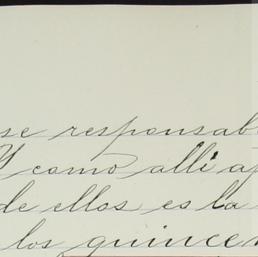 se responsab
Y como alli a
de ellos es la
los quince